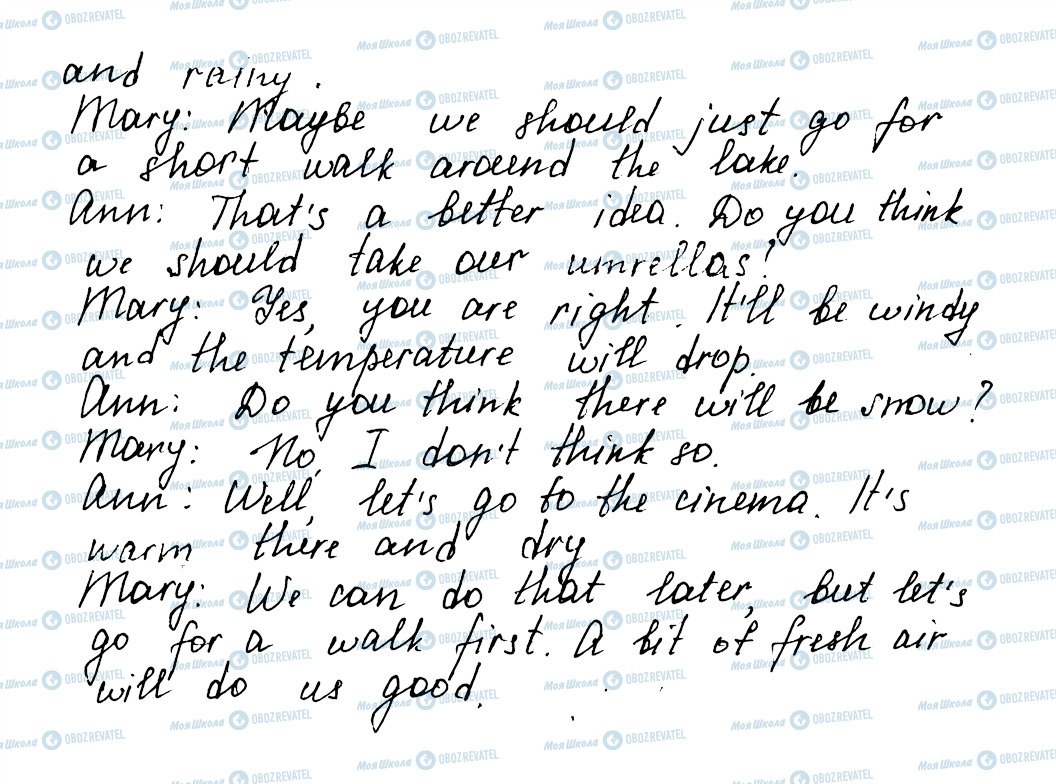 and rainy.
Mary: Maybe we should just go for
a short walk around the lake.
Ann: That's a better idea. Do you think
we should take our umrellas?
Mary: Yes, you are right. It'll be windy
and the temperature will drop.
Ann: Do you think there will be snow?
Mary: No, I don't think so.
Ann: Well, let's go to the cinema. It's
warm there and dry
Mary: We can do that later, but let's
go for a walk first. A bit of fresh air
will do us good.